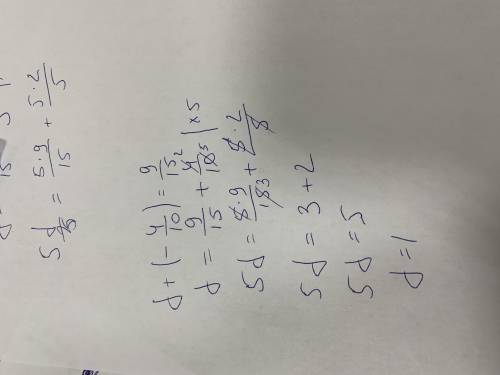 5d = 5·9/15 + 5·2/5
d + (-4/10) = 9/15
d = 9/15 + 4/10 | × 5
5d = 5·9/15 3 + 5·2/5
5d = 3 + 2
5d = 5
d = 1